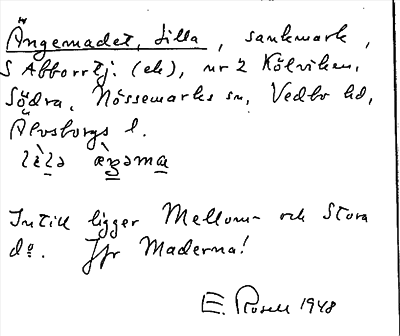 Ängemadet, Lilla, sankmark,
S Abborrtj. (ek), nr 2 Kölviken,
Södra, Nössemarks sn, Vedbo hd,
Älvsborgs l.
Intill ligger Mellom- och Stora
do. Jfr Maderna!
E. Rosell 1948